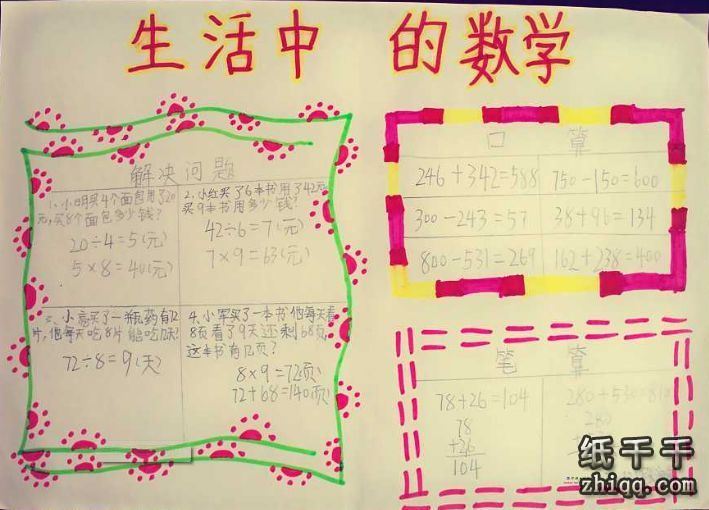 生活中的数学
解决问题
1、小明买4个面包用了20
元,买8个面包多少钱?
20÷4=5(元)
5×8=40(元)
2、小红买了6本书用了42元
买9本书用多少钱?
42÷6=7(元)
7×9=63(元)
小亮买了一瓶药有72
片,他每天吃8片能吃几天?
72÷8=9(天)
4、小军买了一本书他每天看
8页看了9天还剩68页,
这本书有几页?
8×9=72(页)
72+68=140(页)
口算
246+342=588
750-150=600
300-243=57
38+96=134
800-531=269
162+238=400
笔算
78+26=104
78
+26
104
280+530=810
280
纸千千
zhiqq.com